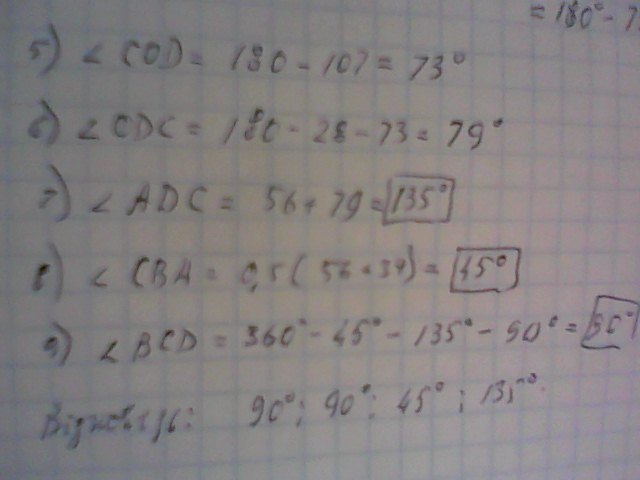 = 180° - 7
5) ∠ COD = 180 - 107 = 73°
6) ∠ CDC = 180 - 28 - 73 = 79°
7) ∠ ADC = 56 + 79 = 135°
8) ∠ CBA = 0,5 ( 56 + 34) = 45°
9) ∠ BCD = 360° - 45° - 135° - 90° = 90°
90°; 90°; 45°; 135°.